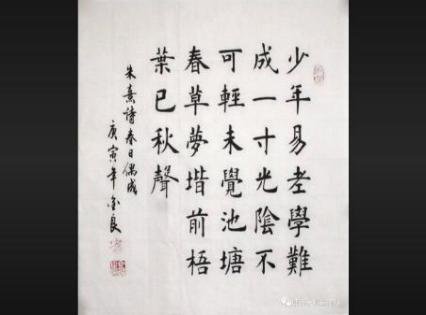 少年易老學難
成一寸光陰不
可輕未覺池塘
春草夢堦前梧
葉已秋聲
朱熹詩春日偶成
庚寅年良